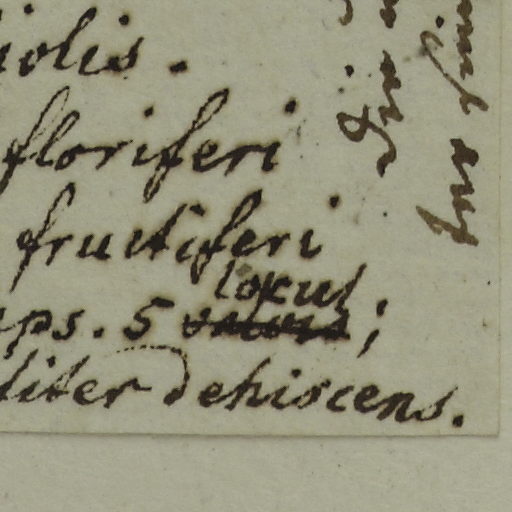 iolis.
floriferi
fructiferi
locul;
ps. 5
liter dehiscens.